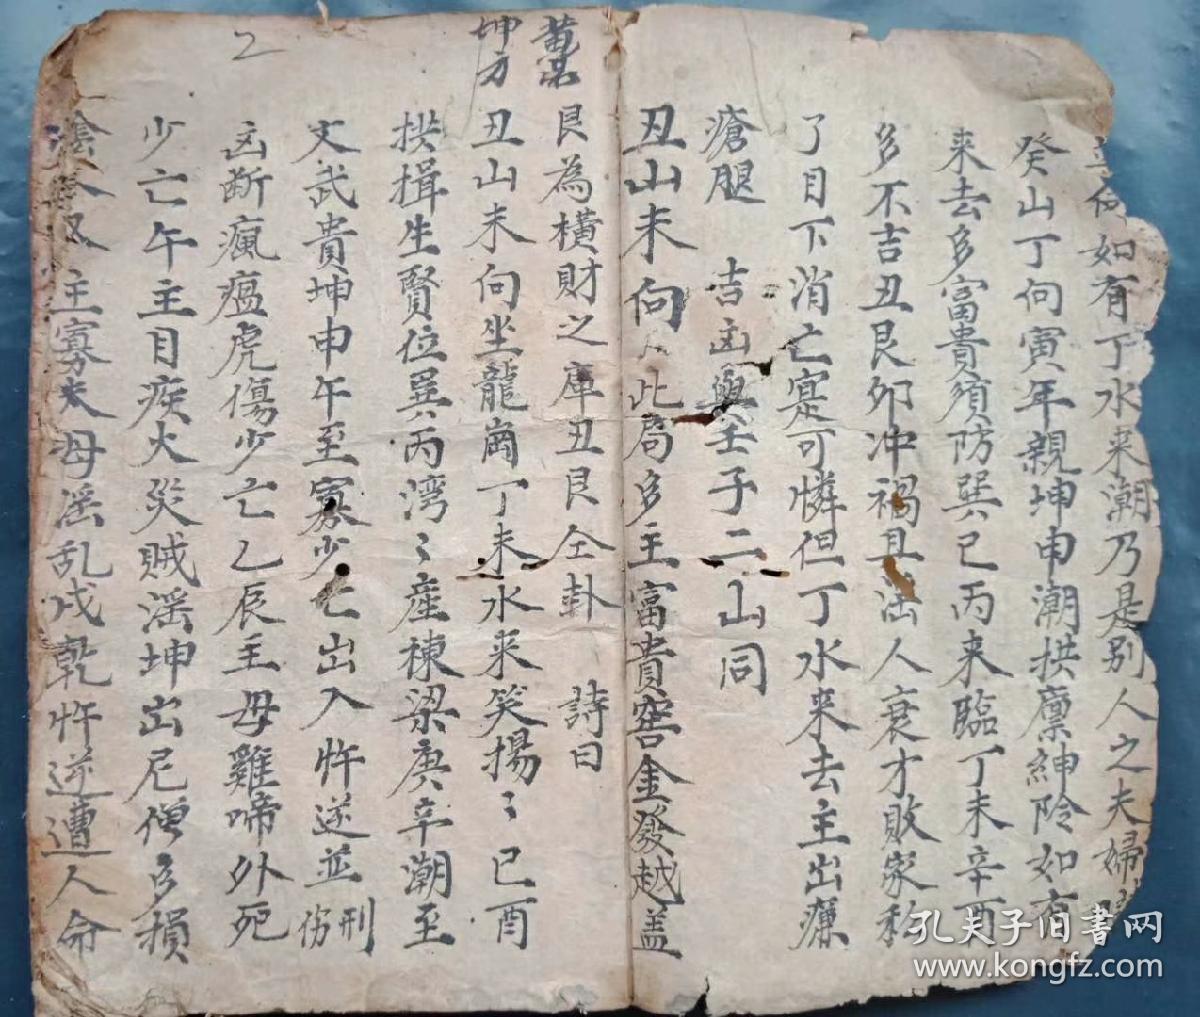 向如有丁水来潮乃是别人之夫婦
癸山丁向寅年親坤申潮拱廪紳阾如有
来去多富貴須防巽巳丙来臨丁未辛酉
多不吉丑艮卯冲禍且人衰才敗家私
了目下消亡寔可憐但丁水来去主出癩
瘡腿 吉凶與壬子二山同
丑山未向 此局多主富貴窖金發越盖
艮為橫財之庫丑艮仝卦 詩曰
坤方
丑山未向坐龍崗丁未水来笑揚〻巳酉
拱揖生賢位巽丙湾〻産棟梁庚辛潮至
文武貴坤申午至寡少亡出入忤逆並刑伤
凶断瘋瘟虎傷少亡乙辰主母雞啼外死
少亡午主目疾火災賊滛坤出尼僧多損
主寡夫母滛乱戌乾忤逆遭人命
2
孔夫子旧书网
www.kongfz.com